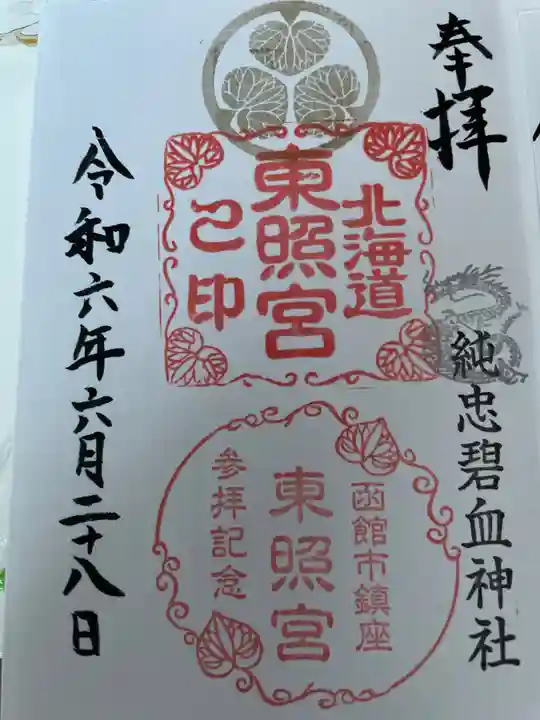 奉拝
純忠碧血神社
北海道
東照宮
之印
函館市鎮座
東照宮
参拝記念
令和六年六月二十八日